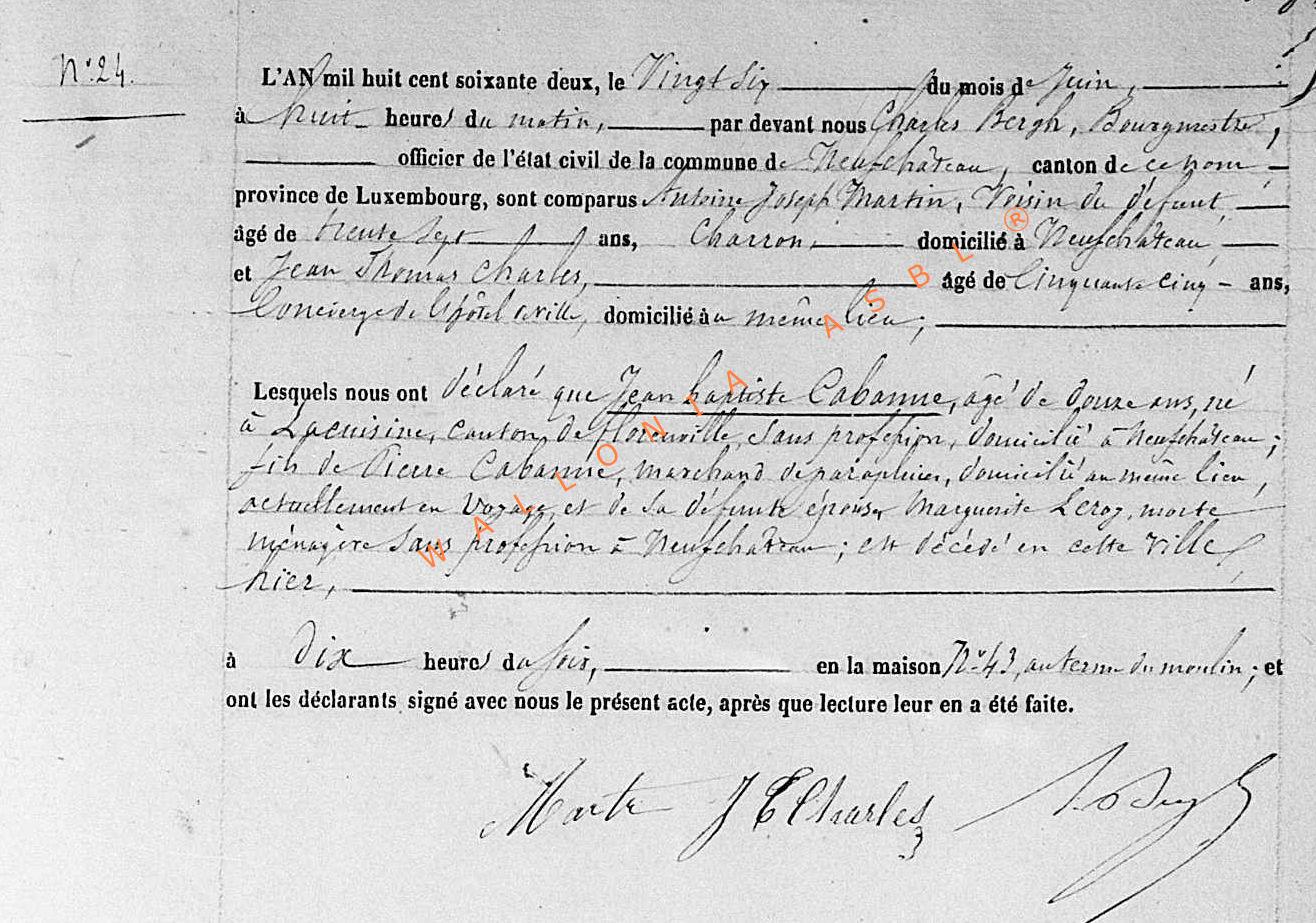 N° 24.
L'AN mil huit cent soixante deux, le Vingt Six du mois de Juin,
à huit heures du matin, par devant nous Charles Bergh, Bourgmestre,
officier de l'état civil de la commune de Neufchâteau, canton de ce nom
province de Luxembourg, sont comparus Antoine Joseph Martin, Voisin du défunt,
âgé de trente Sept ans, Charron, domicilié à Neufchâteau
et Jean Thomas Charles, âgé de Cinquante Cinq ans,
Concierge de l'hôtel de ville, domicilié au même lieu;
Lesquels nous ont déclaré que Jean baptiste Cabanne, âgé de douze ans, né
à Lacuisine, canton de florenville, Sans profession, domicilié à Neufchâteau;
fils de Pierre Cabanne, marchand de parapluies, domicilié au même lieu,
actuellement en Voyage, et de Sa défunte épouse, Marguerite Leroy, morte
ménagère Sans profession à Neufchâteau; est décédé en cette Ville,
hier,
à Dix heures du Soir, en la maison N° 43, au terme du moulin; et
ont les déclarants signé avec nous le présent acte, après que lecture leur en a été faite.
J T Charles
WALLONIA ASBL ®